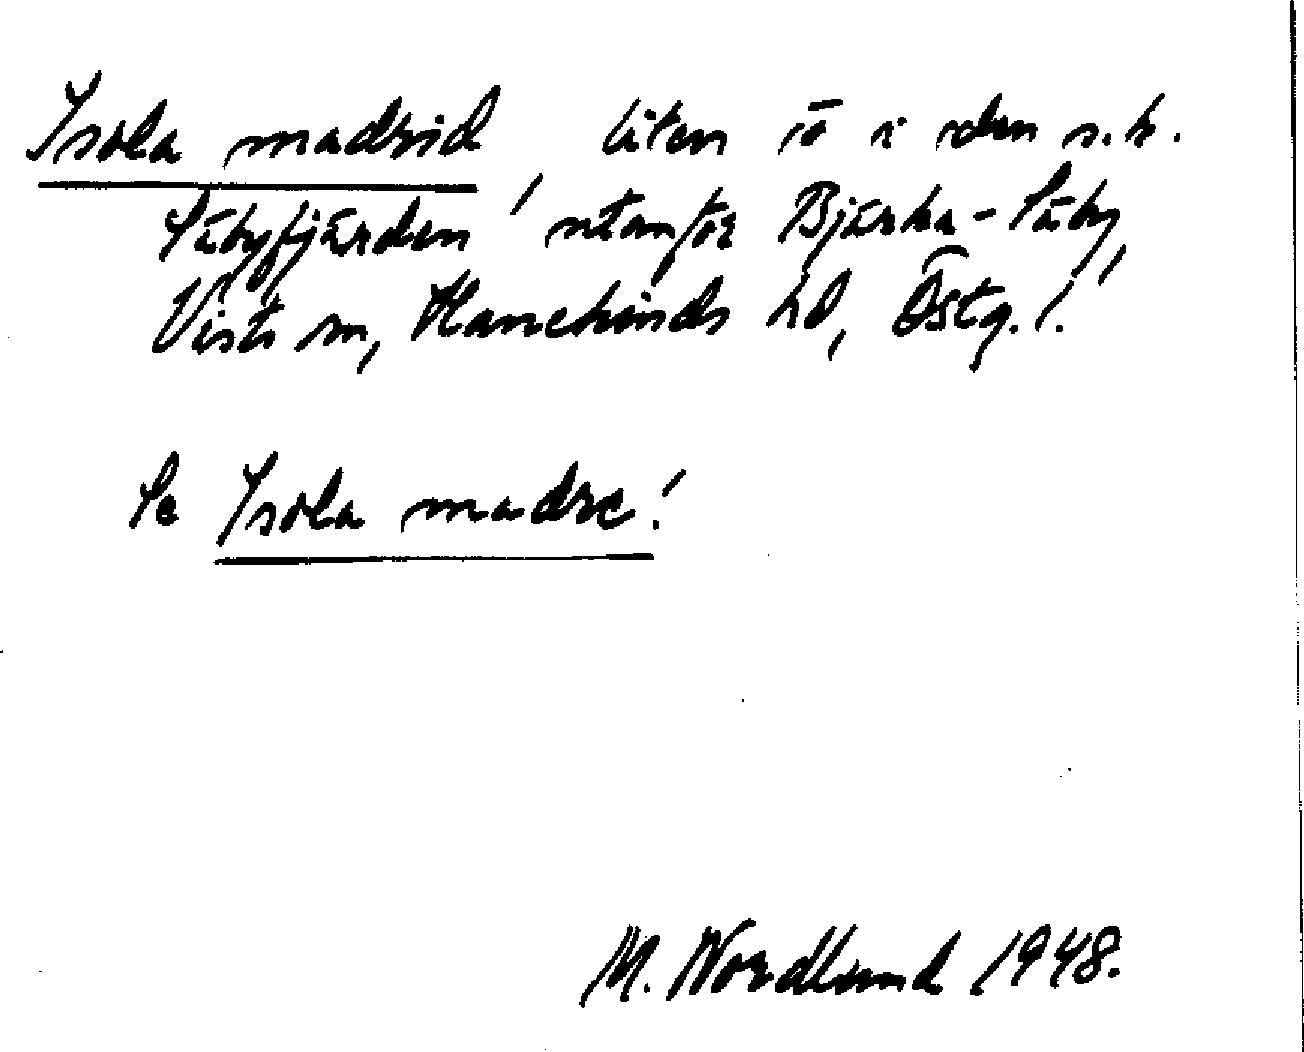 Isola madrid liten ö i den s.k.
Säbyfjärden utanför Bjärka-Säby,
Vists sn, Hanekinds hd, Östg. l.
Se Isola madre!
M. Nordlund 1948.